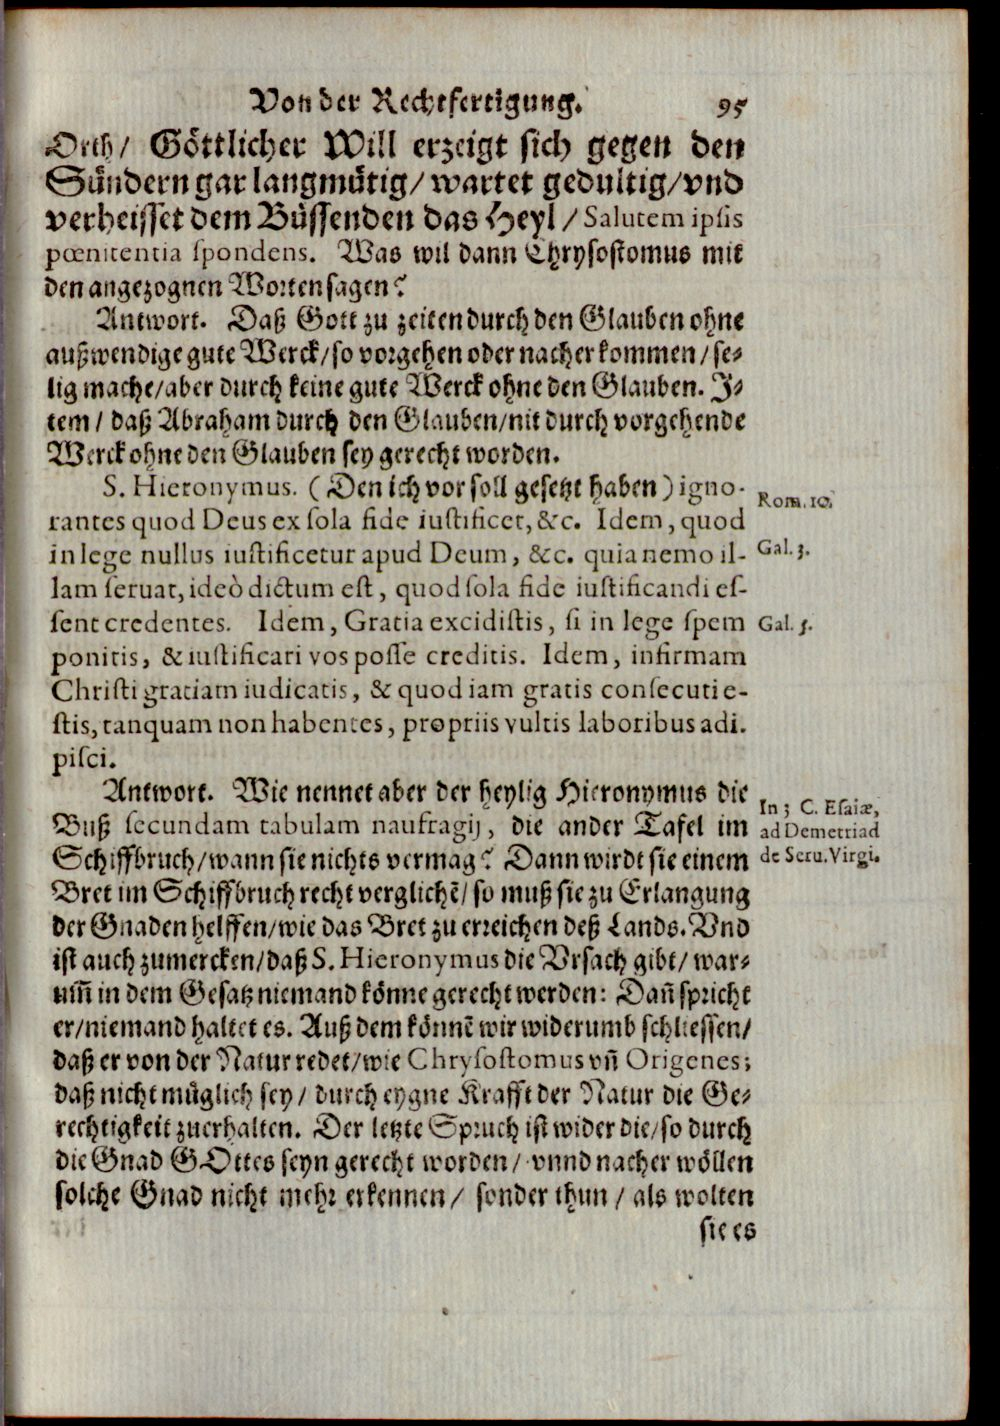 Von der Rechtfertigung. 95
Orth/ Göttlicher Will erzeigt sich gegen den
Sündern gar langmütig/ wartet gedultig/ vnd
verheisset dem Büssenden das Heyl / Salutem ipsis
pœnitentia spondens. Was wil dann Chrysostomus mit
den angezognen Worten sagen?
Antwort. Daß Gott zu zeiten durch den Glauben ohne
außwendige gute Werck/ so vorgehen oder nacher kommen / se-
lig mache/ aber durch keine gute Werck ohne den Glauben. I-
tem / daß Abraham durch den Glauben/ nit durch vorgehende
Werck ohne den Glauben sey gerecht worden.
S. Hieronymus. ( Den ich vor soll gesetzt haben ) igno-
rantes quod Deus ex sola fide iustificet, &c. Idem, quod
Rom. 10.
in lege nullus iustificetur apud Deum, &c. quia nemo il-
Gal. 3.
lam seruat, ideò dictum est, quod sola fide iustificandi es-
sent credentes. Idem, Gratia excidistis, si in lege spem
Gal. 5.
ponitis, & iustificari vos posse creditis. Idem, infirmam
Christi gratiam iudicatis, & quod iam gratis consecuti e-
stis, tanquam non habentes, propriis vultis laboribus adi.
pisci.
Antwort. Wie nennet aber der heylig Hieronymus die
Buß secundam tabulam naufragij, die ander Tafel im
Schiffbruch/ wann sie nichts vermag? Dann wirdt sie einem
In 3 C. Esaiæ,
ad Demetriad
de Seru. Virgi.
Bret im Schiffbruch recht verglichē/ so muß sie zu Erlangung
der Gnaden helffen/ wie das Bret zu erreichen deß Lands. Vnd
ist auch zumercken/ daß S. Hieronymus die Vrsach gibt/ war-
um̄ in dem Gesatz niemand könne gerecht werden: Dañ spricht
er/ niemand haltet es. Auß dem könnē wir widerumb schliessen/
daß er von der Natur redet/ wie Chrysostomus vñ Origenes;
daß nicht müglich sey / durch eygne Krafft der Natur die Ge-
rechtigkeit zuerhalten. Der letzte Spruch ist wider die/ so durch
die Gnad GOttes seyn gerecht worden / vnnd nacher wöllen
solche Gnad nicht mehr erkennen / sonder thun / als wolten
sie es